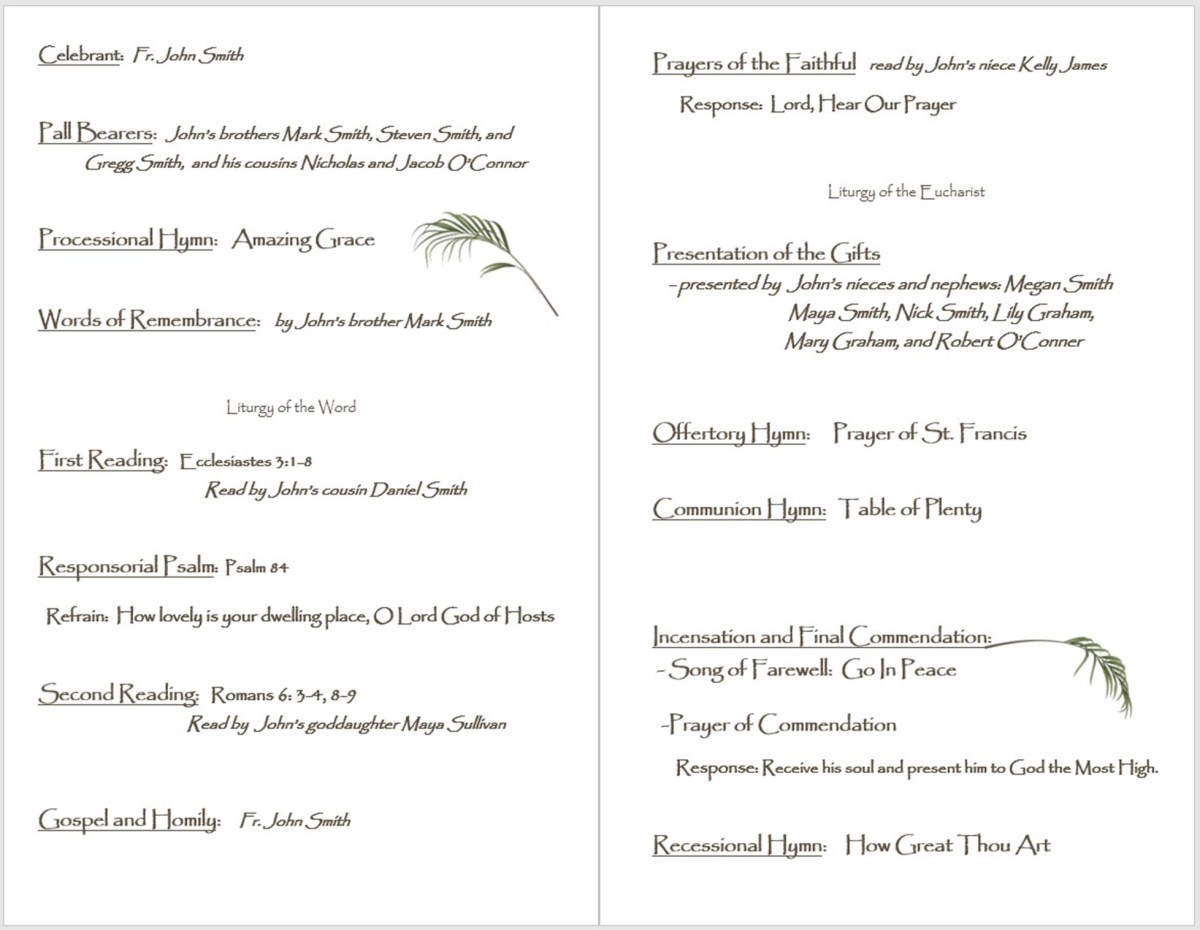 Celebrant: Fr. John Smith
Pall Bearers: John's brothers Mark Smith, Steven Smith, and
Gregg Smith, and his cousins Nicholas and Jacob O'Connor
Processional Hymn: Amazing Grace
Words of Remembrance: by John's brother Mark Smith
Liturgy of the Word
First Reading: Ecclesiastes 3:1-8
Read by John's cousin Daniel Smith
Responsorial Psalm: Psalm 84
Refrain: How lovely is your dwelling place, O Lord God of Hosts
Second Reading: Romans 6: 3-4, 8-9
Read by John's goddaughter Maya Sullivan
Gospel and Homily: Fr. John Smith
Prayers of the Faithful read by John's niece Kelly James
Response: Lord, Hear Our Prayer
Liturgy of the Eucharist
Presentation of the Gifts
- presented by John's nieces and nephews: Megan Smith
Maya Smith, Nick Smith, Lily Graham,
Mary Graham, and Robert O'Conner
Offertory Hymn: Prayer of St. Francis
Communion Hymn: Table of Plenty
Incensation and Final Commendation:
- Song of Farewell: Go In Peace
-Prayer of Commendation
Response: Receive his soul and present him to God the Most High.
Recessional Hymn: How Great Thou Art